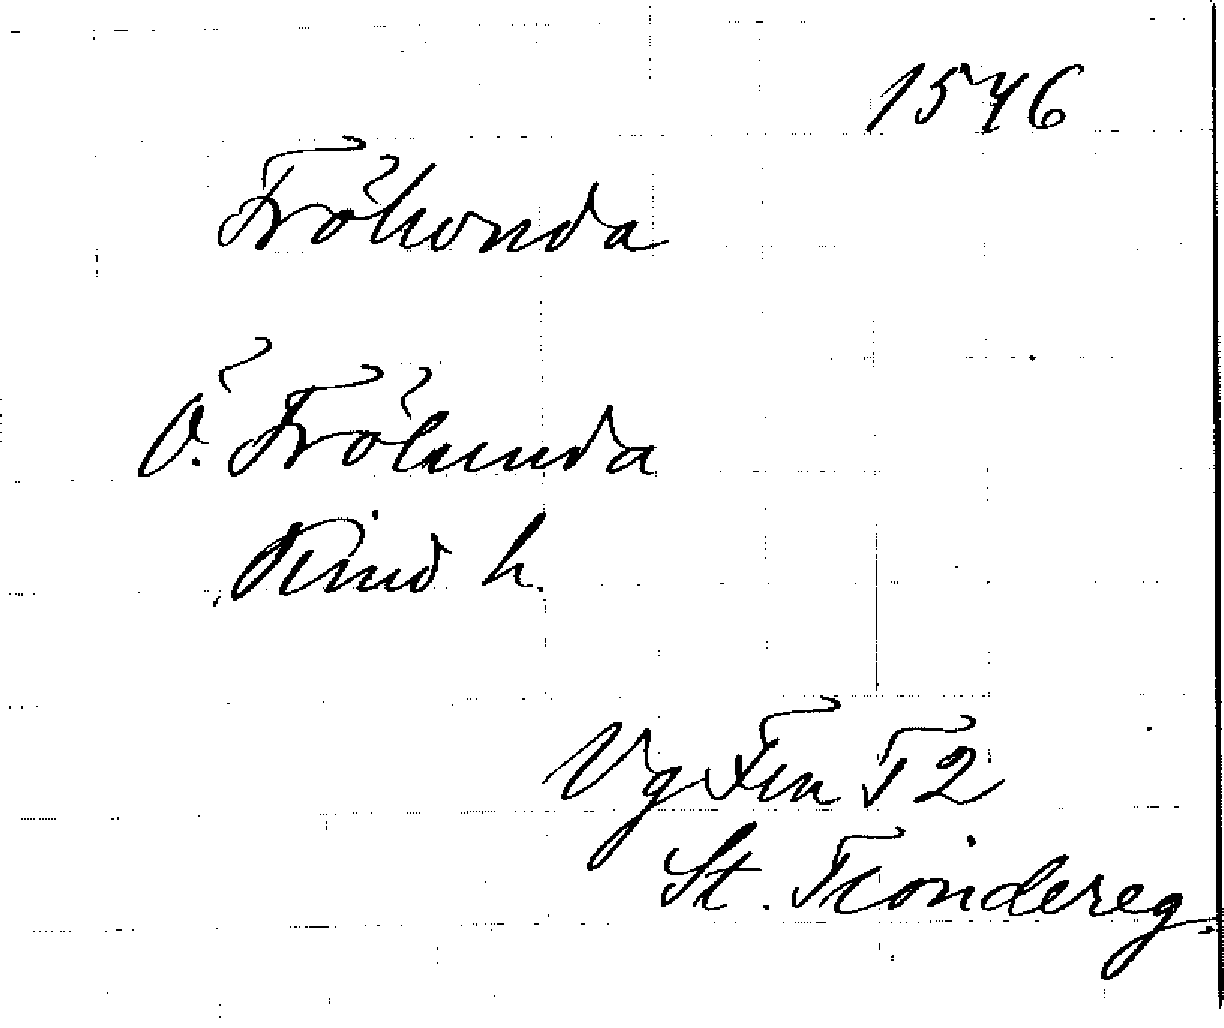 1546
Fröhonda
Ö. Frölunda
Kind h.
Vg Fra T 2
St. Tiondereg.